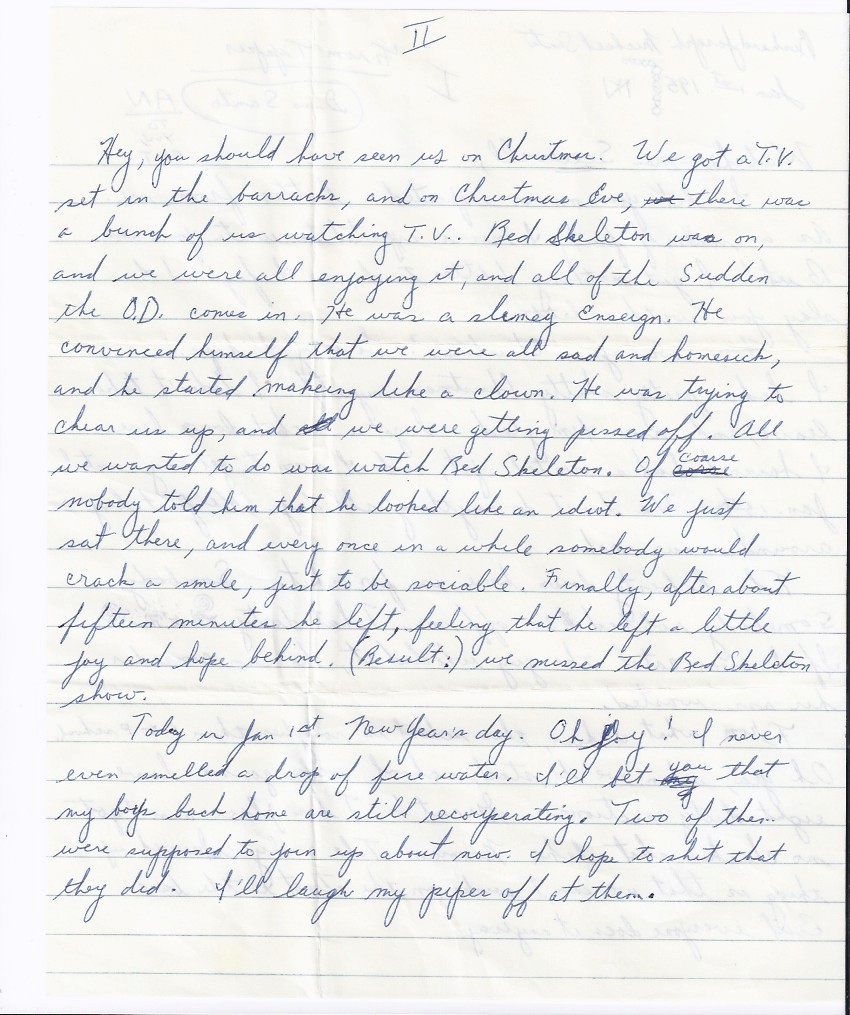 II
Hey, you should have seen us on Christmas. We got a T.V.
set in the barracks, and on Christmas Eve, there was
a bunch of us watching T.V.. Red Skeleton was on,
and we were all enjoying it, and all of the Sudden
the O.D. comes in. He was a slimey Enseign. He
convinced himself that we were all sad and homesick,
and he started makeing like a clown. He was trying to
chear us up, and we were getting pissed off. All
we wanted to do was watch Red Skeleton. Of coarse
nobody told him that he looked like an idiot. We just
sat there, and every once in a while somebody would
crack a smile, just to be sociable. Finally, after about
fifteen minutes he left, feeling that he left a little
joy and hope behind. (Result:) we missed the Red Skeleton
show.
Today is Jan 1st. New Year's day. Oh joy! I never
even smelled a drop of fire water. I'll bet you that
my boys back home are still recouperating. Two of them
were supposed to join up about now. I hope to shit that
they did. I'll laugh my piper off at them.